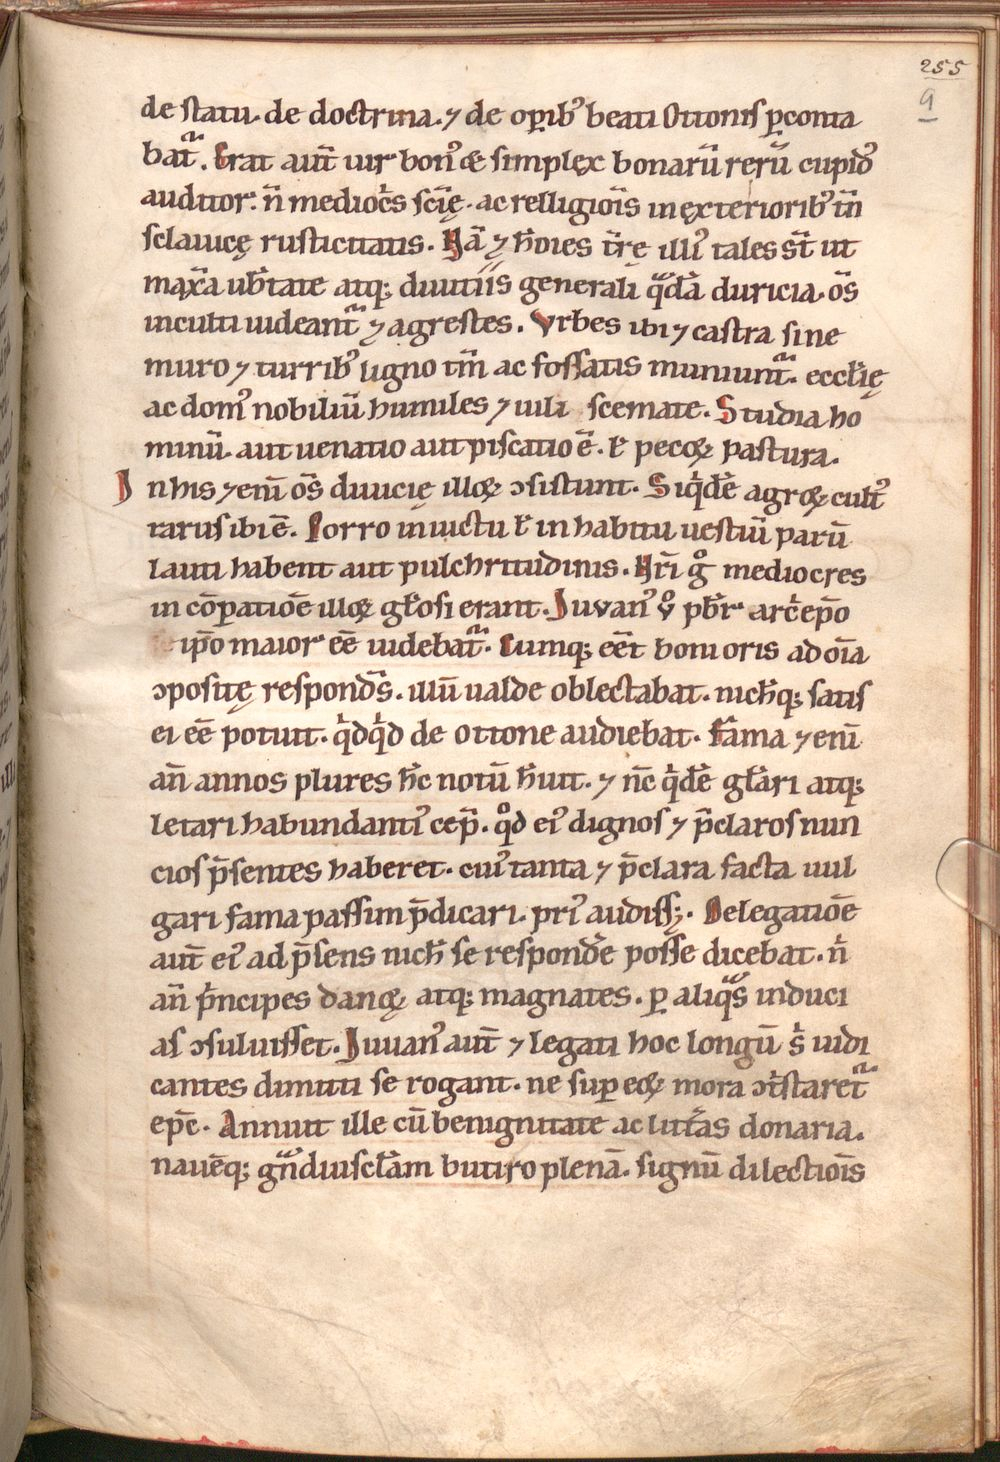 255
9
de statu. de doctrina. ⁊ de opib᾽ beati Ottonis pconta
bat̃. Erat aut̃ uir bon᾽ & simplex bonarũ rerũ cupid᾽
auditor. ñ mediocs̃ scĩę. ac relligiõis in exteriorib᾽ tñ
sclauicę rusticitatis. Nã ⁊ hoĩes t̃rę illi᾽ tales st̃ ut
maxĩa ub̃tate atq; diuitiis generali qᵃdã duricia. os̃
inculti uideant̃ ⁊ agrestes. Vrbes ibi ⁊ castra sine
muro ⁊ turrib᾽ ligno tm̃ ac fossatis muniunt̃. eccl̃ię
ac dom᾽ nobiliũ humiles ⁊ uili scemate. Studia ho
minũ. aut uenatio aut piscatio ẽ. ł pecoꝝ pastura.
In his ⁊eni̅ os̃ diuicię illoꝝ ↄsistunt. Siqͥdẽ agroꝝ cult᾽
rarus ibi ẽ. Porro in uictu ł in habitu uestiũ parũ
lauti habent aut pulchritudinis. Nr̃i gͦ mediocres
in cõpatiõe illoꝝ gl̃osi erant. Iuuan᾽ vͦ pbr̃ arc̃epõ
ipõ maior eẽ uidebat̃. Cumq; eẽt boni oris ad oĩa
ↄpositę respondẽs. illũ ualde oblectabat. nich̃q; satis
ei eẽ potuit. qͥdqͥd de Ottone audiebat. Fama ⁊eni̅
añ annos plures h̃c notũ h̃uit. ⁊ nc̃ qͥdẽ gl̃ari atq;
letari habundanti᾽ cep̃. qͦd ei᾽ dignos ⁊ p̃claros nun
cios p̃sentes haberet. cui᾽ tanta ⁊ p̃clara facta uul
gari fama passim p̃dicari. pri᾽ audiss;. Delegatiõe
aut̃ ei᾽ ad p̃sens nich̃ se respondẽ posse dicebat. nͥ
añ pͥncipes danoꝝ atq; magnates. p aliqᵒs induci
as ↄsuluisset. Iuuan᾽ aut̃ ⁊ legati hoc longũ sͥ iudi
cantes dimitti se rogant. ne sup eoꝝ mora ↄtͥstaret̃
epc̃. Annuit ille cũ benignitate ac litt̃as donaria.
nauẽq; gᵃndiusclãm butiro plenã. signũ dilectiõis